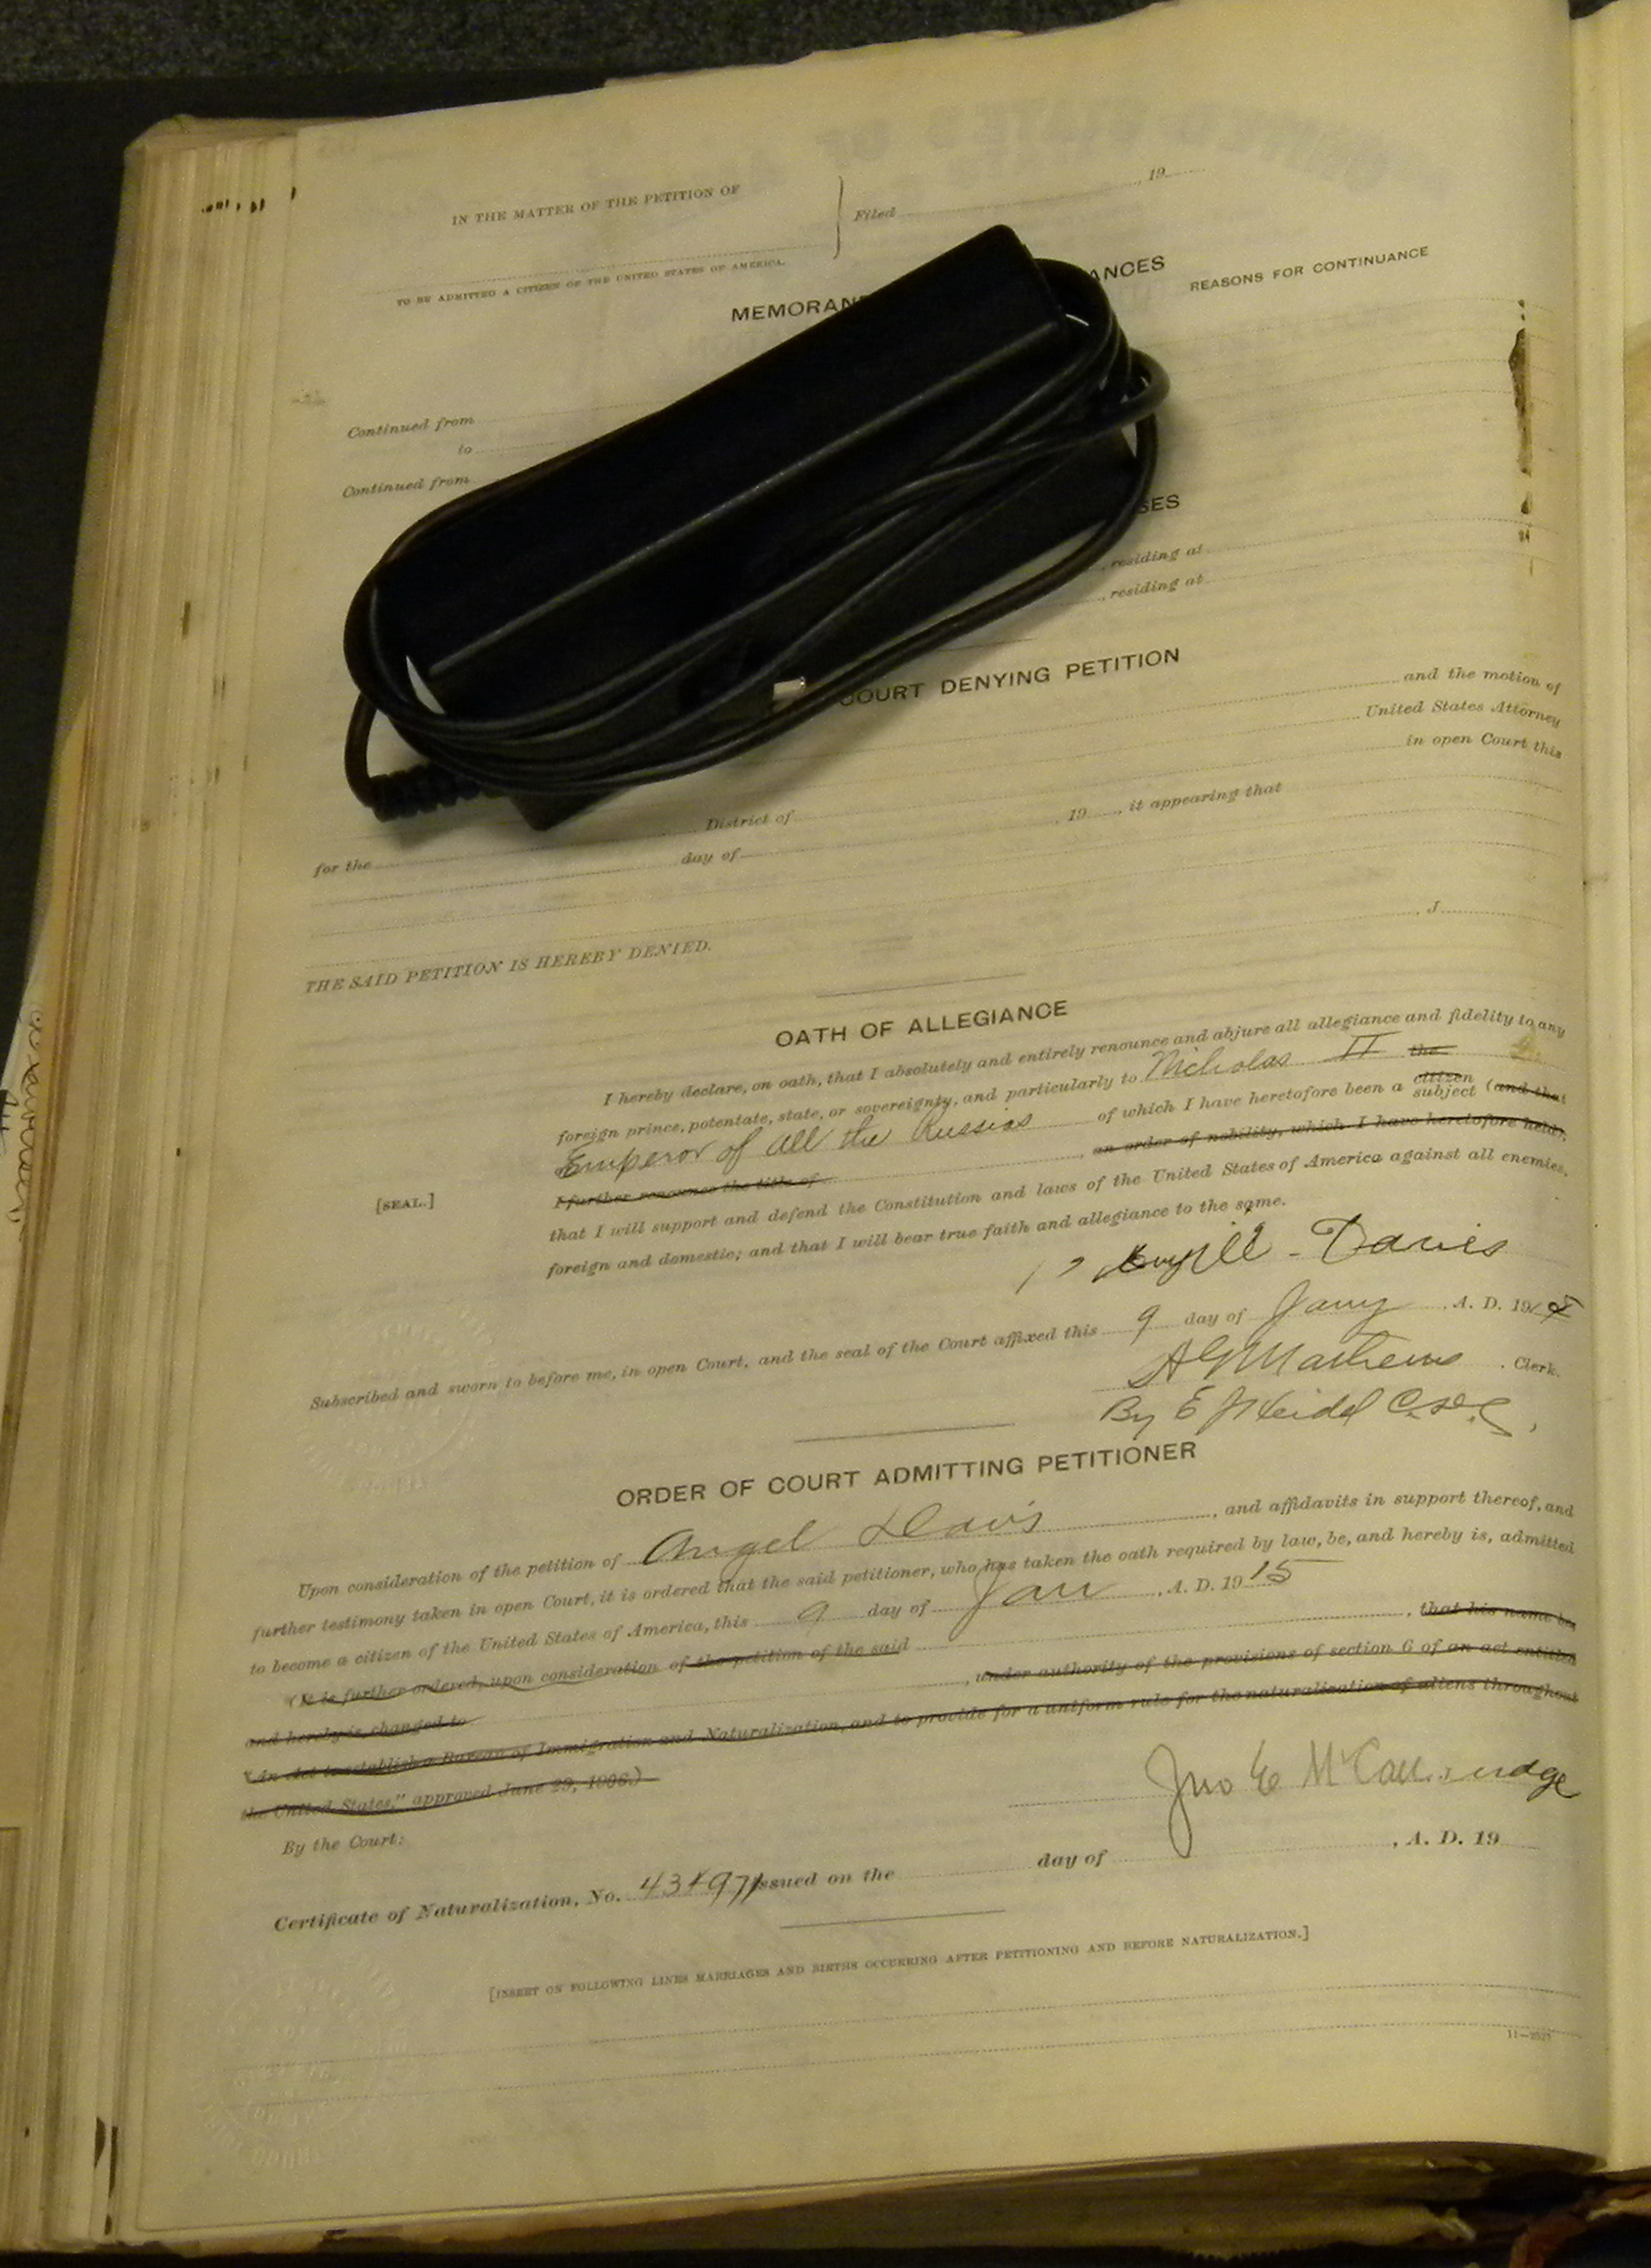 IN THE MATTER OF THE PETITION OF
Filed , 19
TO BE ADMITTED A CITIZEN OF THE UNITED STATES OF AMERICA.
MEMORAN ANCES
REASONS FOR CONTINUANCE
Continued from
to
Continued from
SES
, residing at
, residing at
COURT DENYING PETITION
and the motion of
United States Attorney
in open Court this
for the District of
day of , 19 , it appearing that
THE SAID PETITION IS HEREBY DENIED.
, J.
OATH OF ALLEGIANCE
I hereby declare, on oath, that I absolutely and entirely renounce and abjure all allegiance and fidelity to any
foreign prince, potentate, state, or sovereignty, and particularly to Nicholas II the
Emperor of all the Russias of which I have heretofore been a citizen subject (and that
I further renounce the title of , an order of nobility, which I have heretofore held),
[SEAL.] that I will support and defend the Constitution and laws of the United States of America against all enemies,
foreign and domestic; and that I will bear true faith and allegiance to the same.
Davis
Subscribed and sworn to before me, in open Court, and the seal of the Court affixed this 9 day of Jany , A. D. 19
A G Mathews , Clerk.
By E J Heidel
ORDER OF COURT ADMITTING PETITIONER
Upon consideration of the petition of Angel Davis , and affidavits in support thereof, and
further testimony taken in open Court, it is ordered that the said petitioner, who has taken the oath required by law, be, and hereby is, admitted
to become a citizen of the United States of America, this 9 day of Jan , A. D. 1915
(It is further ordered, upon consideration of the petition of the said , that his name be,
and hereby is, changed to , under authority of the provisions of section 6 of an act entitled
"An Act to establish a Bureau of Immigration and Naturalization, and to provide for a uniform rule for the naturalization of aliens throughout
the United States," approved June 29, 1906.)
By the Court:
Jno E McCall Judge
Certificate of Naturalization, No. issued on the day of , A. D. 19
[INSERT ON FOLLOWING LINES MARRIAGES AND BIRTHS OCCURRING AFTER PETITIONING AND BEFORE NATURALIZATION.]